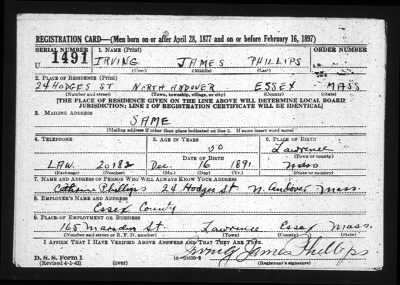 REGISTRATION CARD—(Men born on or after April 28, 1877 and on or before February 16, 1897)
SERIAL NUMBER 1. NAME (Print) ORDER NUMBER
U 1491 IRVING JAMES PHILLIPS
(First) (Middle) (Last)
2. PLACE OF RESIDENCE (Print)
24 HODGES ST NORTH ANDOVER ESSEX MASS
(Number and street) (Town, township, village, or city) (County) (State)
[THE PLACE OF RESIDENCE GIVEN ON THE LINE ABOVE WILL DETERMINE LOCAL BOARD
JURISDICTION; LINE 2 OF REGISTRATION CERTIFICATE WILL BE IDENTICAL]
3. MAILING ADDRESS
SAME
[Mailing address if other than place indicated on line 2. If same insert word same]
4. TELEPHONE 5. AGE IN YEARS 6. PLACE OF BIRTH
50 Lawrence
DATE OF BIRTH (Town or county)
LAW. 20182 Dec. 16 1891 Mass
(Exchange) (Number) (Mo.) (Day) (Yr.) (State or country)
7. NAME AND ADDRESS OF PERSON WHO WILL ALWAYS KNOW YOUR ADDRESS
Catherine Phillips 24 Hodges St N. Andover Mass.
8. EMPLOYER'S NAME AND ADDRESS
Essex County
9. PLACE OF EMPLOYMENT OR BUSINESS
165 Marston St Lawrence Essex Mass.
(Number and street or R. F. D. number) (Town) (County) (State)
I AFFIRM THAT I HAVE VERIFIED ABOVE ANSWERS AND THAT THEY ARE TRUE.
D. S. S. Form 1
(Revised 4-1-42) (over) Irving James Phillips
(Registrant's signature)